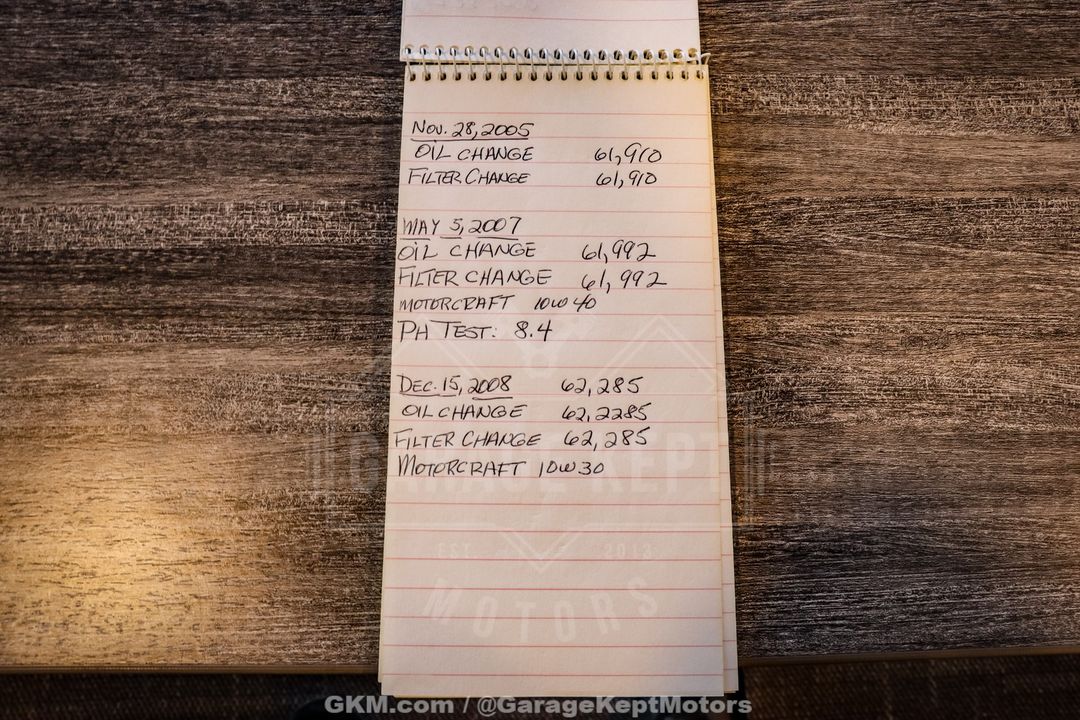 Nov. 28, 2005
OIL CHANGE 61,910
FILTER CHANGE 61,910
MAY 5, 2007
OIL CHANGE 61,992
FILTER CHANGE 61,992
MOTORCRAFT 10W40
PH TEST: 8.4
DEC. 15, 2008 62,285
OIL CHANGE 62,2285
FILTER CHANGE 62,285
MOTORCRAFT 10W30
GARAGE KEPT
EST. 2013
MOTORS
GKM.com / @GarageKeptMotors